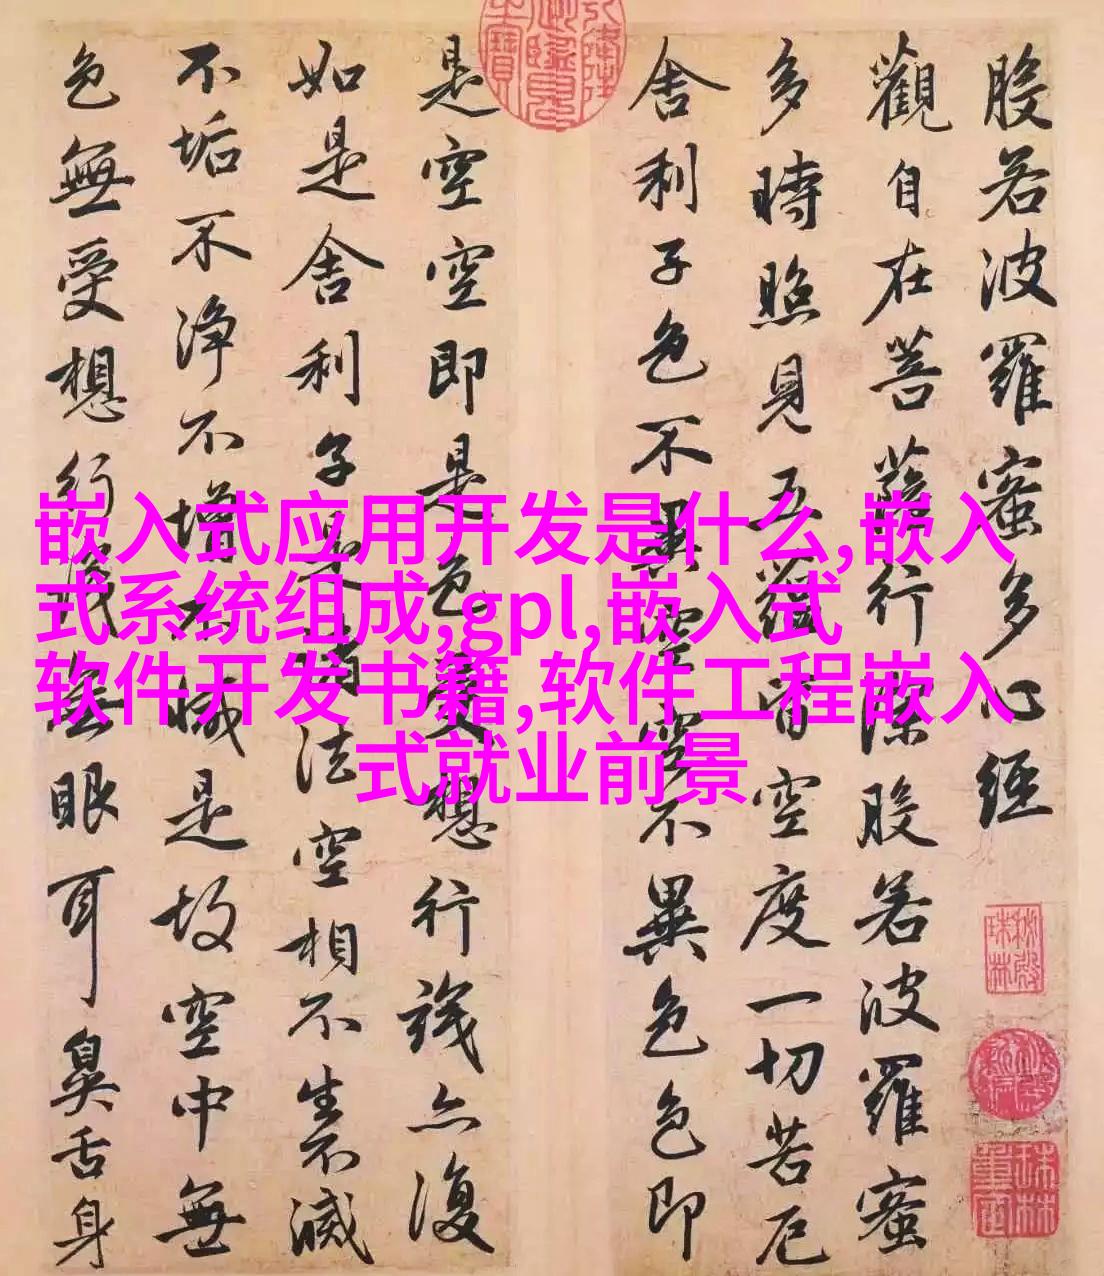 般若波羅蜜多心經
觀自在菩薩行深般若波羅蜜
多時照見五蘊皆空度一切苦厄
舍利子色不異空空不異色色即
是空空即是色受想行識亦復
如是舍利子是諸法空相不生不滅
不垢不淨不增不減是故空中無
色無受想行識無眼耳鼻舌身
嵌入式应用开发是什么,嵌入
式系统组成,gpl,嵌入式
软件开发书籍,软件工程嵌入
式就业前景
秘殿珠林
珠林重定